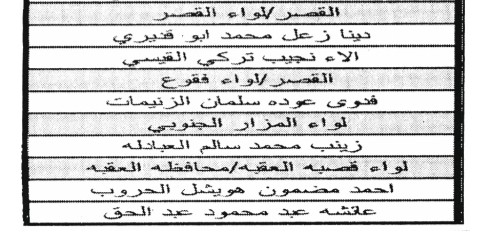 القصر/لواء القصر
دينا زعل محمد ابو قديري
الاء نجيب تركي القيسي
القصر/لواء فقوع
فدوى عوده سلمان الزنيمات
لواء المزار الجنوبي
زينب محمد سالم العبادله
لواء قصبه العقبه/محافظه العقبه
احمد مضمون هويشل الحروب
عائشه عبد محمود عبد الحق